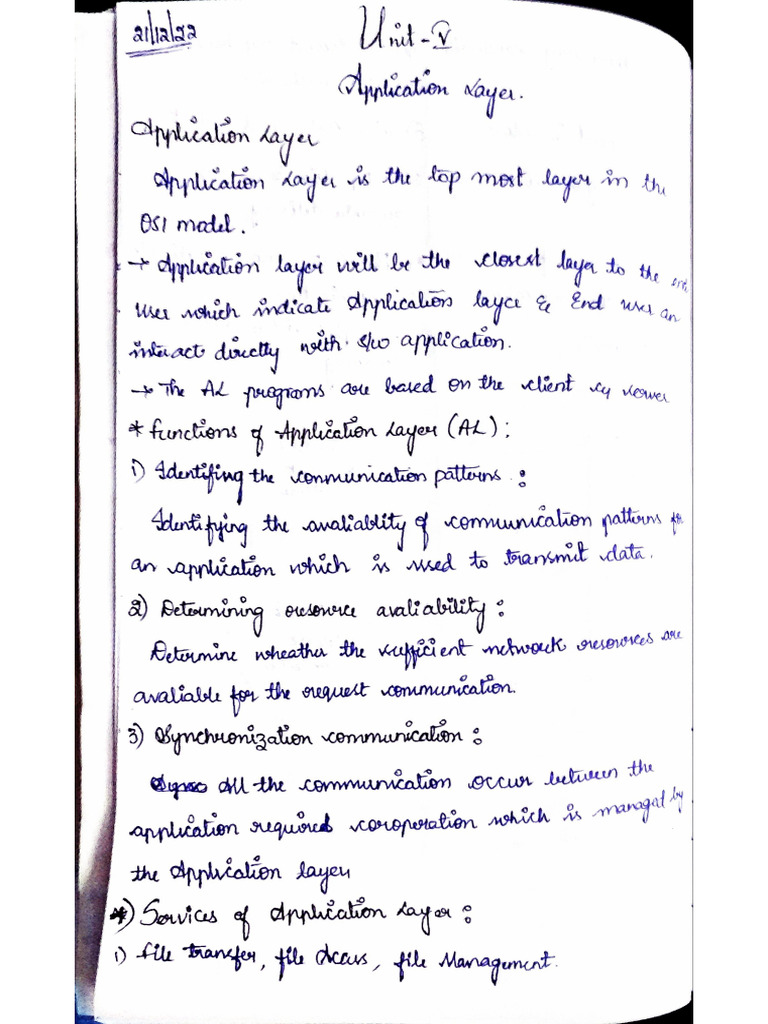 21/12/22
Unit - V
Application Layer.
Application Layer
Application Layer is the top most layer in the
OSI model.
→ Application layer will be the closest layer to the end
user which indicate Application layer & End user an
interact directly with s/w application.
→ The AL programs are based on the client
* Functions of Application Layer (AL) :
1) Identifing the communication patterns :
Identifying the avaliablity of communication patterns for
an application which is used to transmit data.
2) Determining resource avaliability :
Determine wheather the sufficient network resources are
avaliable for the request communication.
3) Synchronization communication :
All the communication occur between the
application required coroperation which is managed by
the Application layer
*) Services of Application Layer :
1) File transfer, file Access, file Management.